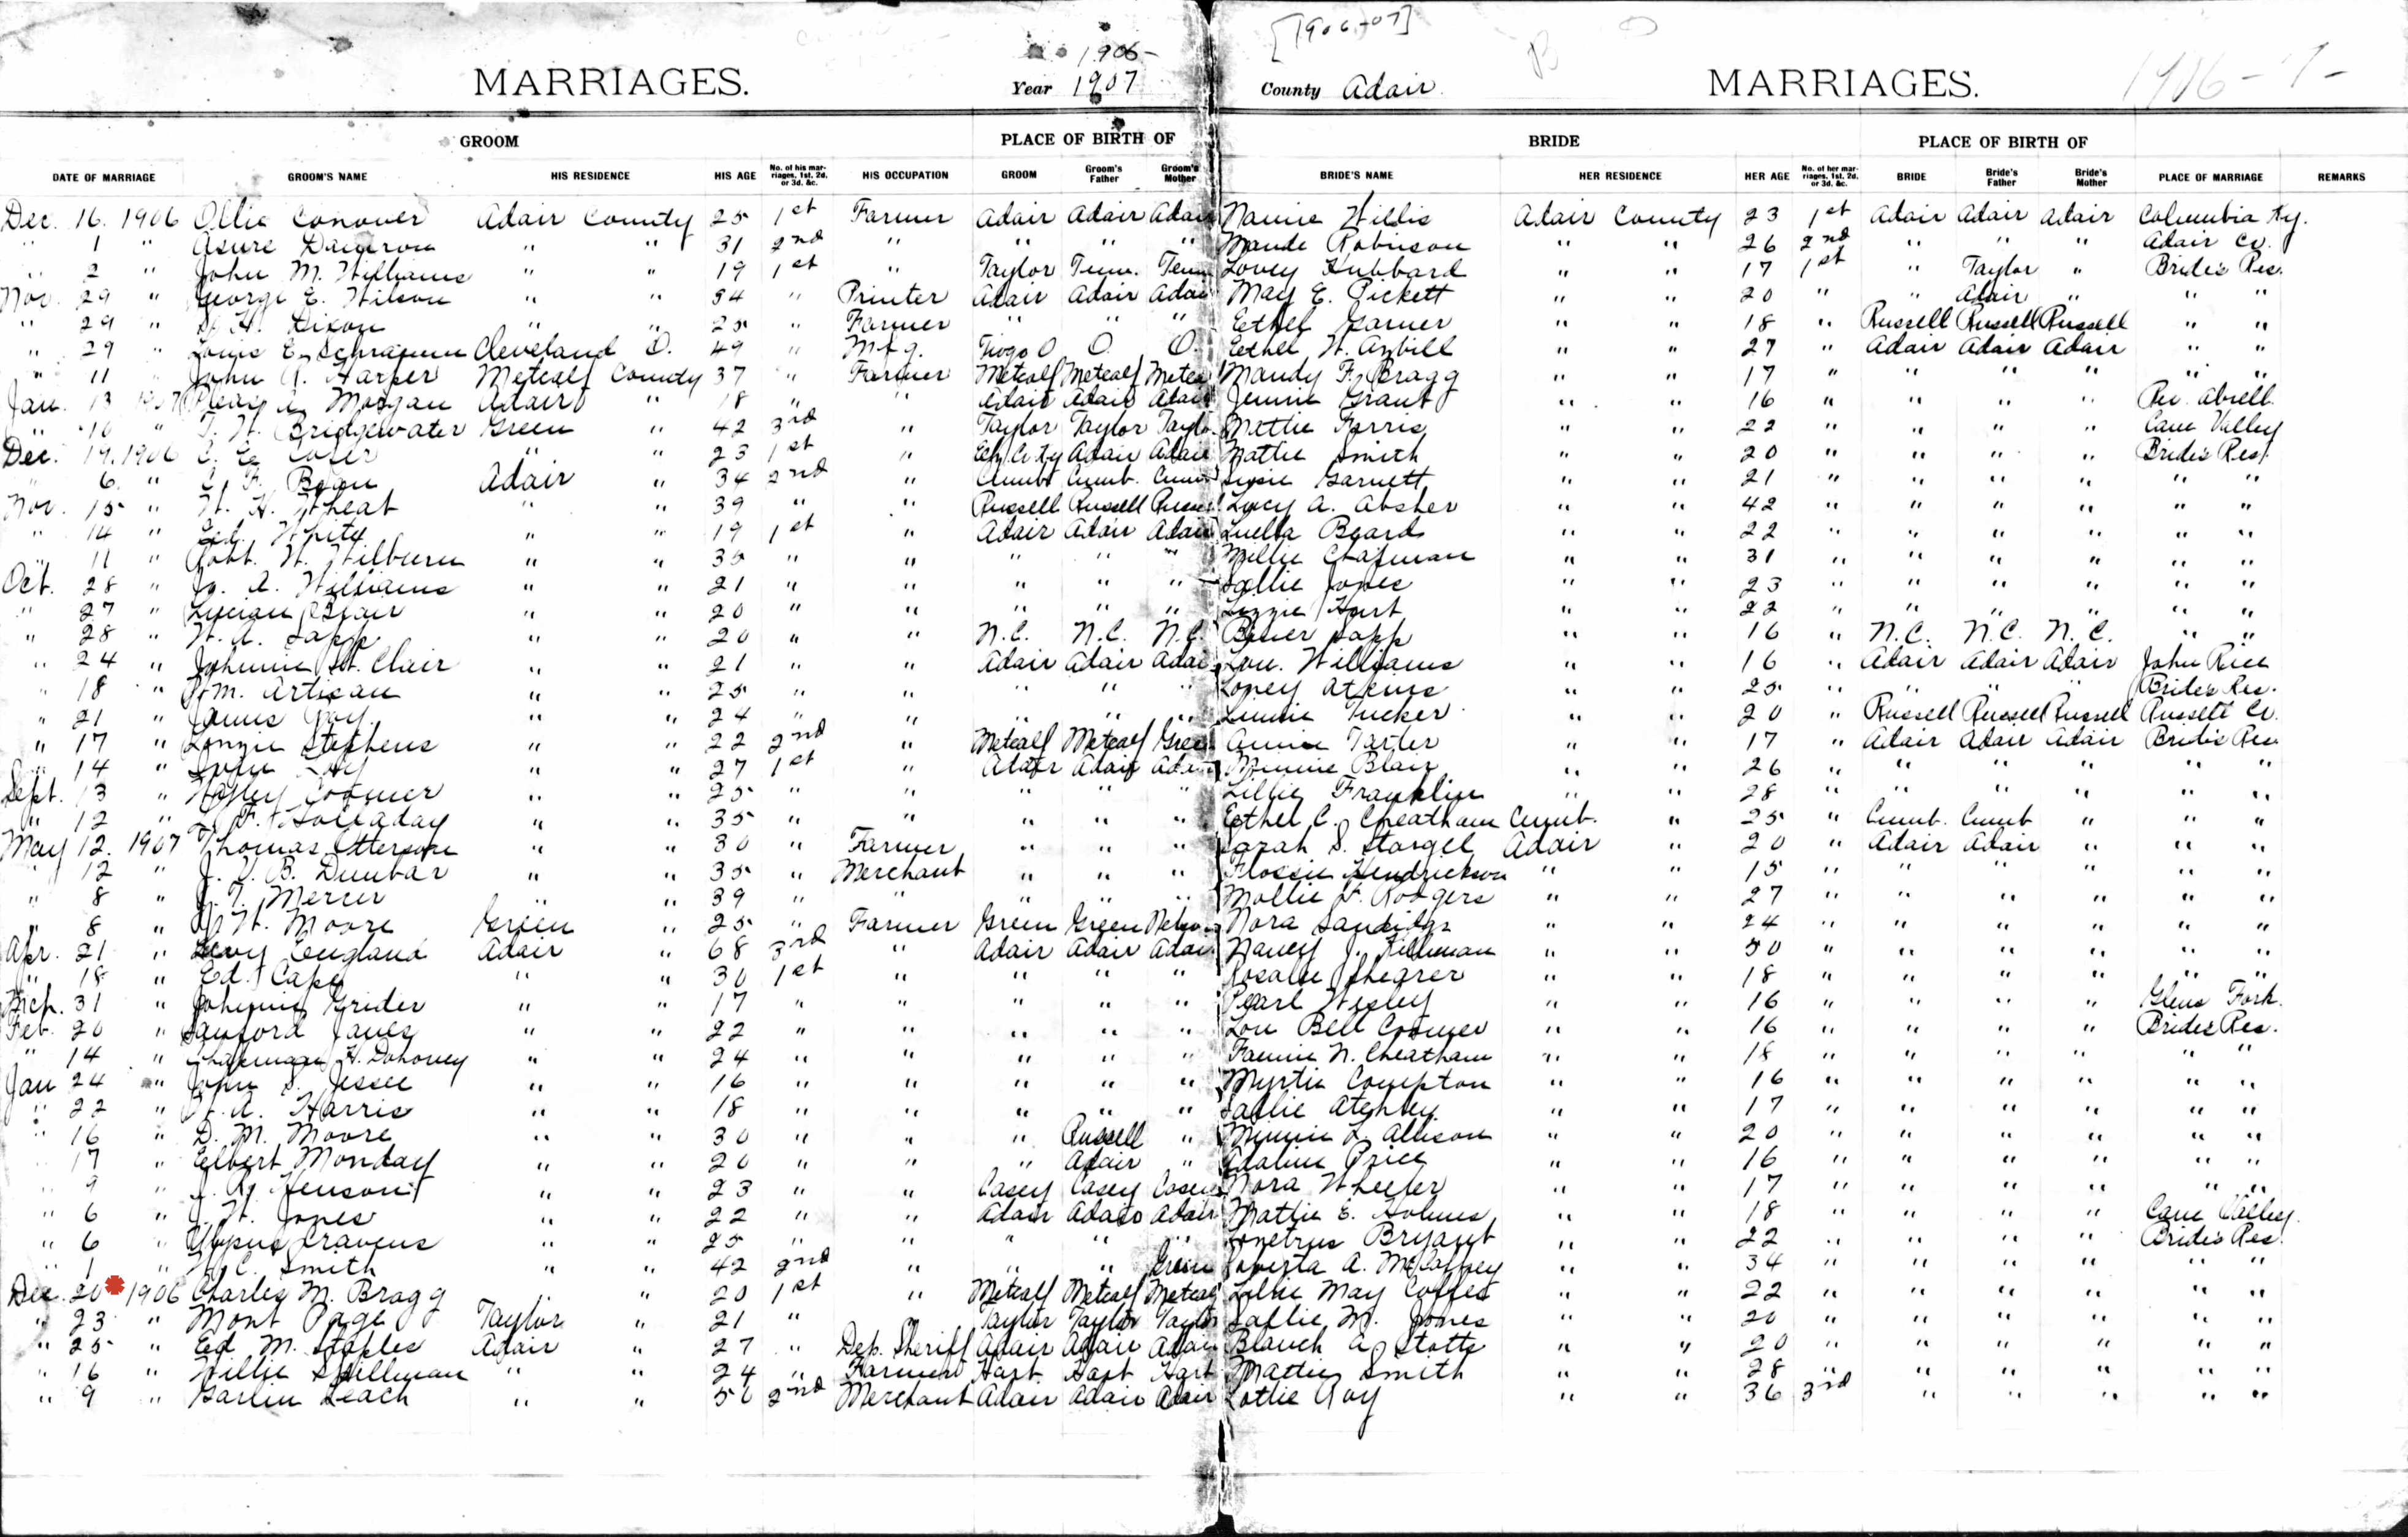 [1906-07]
1906-
MARRIAGES. Year 1907 County Adair MARRIAGES. 1906-7-
GROOM PLACE OF BIRTH OF BRIDE PLACE OF BIRTH OF
DATE OF MARRIAGE GROOM'S NAME HIS RESIDENCE HIS AGE No. of his marriages, 1st, 2d, or 3d, &c. HIS OCCUPATION GROOM Groom's Father Groom's Mother BRIDE'S NAME HER RESIDENCE HER AGE No. of her marriages, 1st, 2d, or 3d, &c. BRIDE Bride's Father Bride's Mother PLACE OF MARRIAGE REMARKS
Dec. 16. 1906 Ollie Conover Adair County 25 1st Farmer Adair Adair Adair Nannie Willis Adair County 23 1st Adair Adair Adair Columbia Ky.
" 1 " Asure Dameron " " 31 2nd " " " " Maude Robinson " " 26 2nd " " " Adair Co.
" 2 " John M. Williams " " 19 1st " Taylor Tenn. Tenn Lovey Hubbard " " 17 1st " Taylor " Bride's Res.
Nov. 29 " George E. Wilson " " 54 " Printer Adair Adair Adair May E. Pickett " " 20 " " Adair " " "
" 29 " H. Dixon " " 25 " Farmer " " " Ethel Garner " " 18 " Russell Russell Russell " "
" 29 " Louis E. Schramm Cleveland O. 49 " Mfg. O O. O. Ethel W. Azbill " " 27 " Adair Adair Adair " "
" 11 " John A. Harper Metcalf County 37 " Farmer Metcalf Metcalf Metca Mandy F. Bragg " " 17 " " " " " "
Jan. 13 1907 Morgan Adair " 18 " " Adair Adair Adair Jennie Grant " " 16 " " " " Abrell.
" 16 " T. W. Bridgewater Green " 42 3rd " Taylor Taylor Taylo Mattie Farris " " 22 " " " " Cane Valley
Dec. 19. 1906 " " 23 1st " Adair Adair Mattie Smith " " 20 " " " " Bride's Res.
" 6. " F. Bean Adair " 34 2nd " Cumb Cumb. Cum Susie Garnett " " 21 " " " " " "
Nov. 15 " W. H. Wheat " " 39 " " Russell Russell Russel Lucy A. Absher " " 42 " " " " " "
" 14 " Ed. White " " 19 1st " Adair Adair Adair Luella Beard " " 22 " " " " " "
" 11 " Robt. W. Wilburn " " 35 " " " " " Millie Chapman " " 31 " " " " " "
Oct. 28 " A. Williams " " 21 " " " " " Sallie Jones " " 23 " " " " " "
" 27 " Lucian Blair " " 20 " " " " " Lizzie Hart " " 22 " " " " " "
" 28 " W. A. Sapp " " 20 " " N.C. N.C. N.C. Sapp " " 16 " N.C. N.C. N.C. " "
" 24 " Johnnie St. Clair " " 21 " " Adair Adair Adai Lou. Williams " " 16 " Adair Adair Adair John Rice
" 18 " Wm. Artisan " " 25 " " " " " Loney Atkins " " 25 " " " " Bride's Res.
" 21 " James Goy " " 24 " " " " " Linnie Tucker " " 20 " Russell Russell Russell Russell Co.
" 17 " Lonzie Stephens " " 22 2nd " Metcalf Metcalf Green Annie Tarter " " 17 " Adair Adair Adair Bride's Res
" 14 " John " " 27 1st " Adair Adair Adair Minnie Blair " " 26 " " " " " "
Sept. 13 " Coomer " " 25 " " " " " Lillie Franklin " " 28 " " " " " "
" 12 " F. Holladay " " 35 " " " " " Ethel C. Cheatham Cumb. " 25 " Cumb. Cumb " " "
May 12. 1907 Thomas " " 30 " Farmer " " " Sarah S. Stargel Adair " 20 " Adair Adair " " "
" 12 " J. D. B. Dunbar " " 35 " Merchant " " " Flossie Hendrickson " " 15 " " " " " "
" 8 " Mercer " " 39 " " " " " Mollie F. Rodgers " " 27 " " " " " "
" 8 " W. Moore Green " 25 " Farmer Green Green Nora Sandidge " " 24 " " " " " "
Apr. 21 " Levy England Adair " 68 3rd " Adair Adair Adair Nancy J. " " 50 " " " " " "
" 18 " Ed. Cape " " 30 1st " " " " Rosalie Shearer " " 18 " " " " " "
Mch. 31 " Johnnie Grider " " 17 " " " " " Pearl Wesley " " 16 " " " " Glens Fork.
Feb. 20 " Sanford Janes " " 22 " " " " " Lou Bell Coomer " " 16 " " " " Brides Res.
" 14 " Chapman H. Dohoney " " 24 " " " " " Fannie N. Cheatham " " 18 " " " " " "
Jan 24 " John S. Jessee " " 16 " " " " " Myrtie Compton " " 16 " " " " " "
" 22 " A. Harris " " 18 " " " " " Sallie Atchley " " 17 " " " " " "
" 16 " D. M. Moore " " 30 " " " Russell " Minnie L. Allison " " 20 " " " " " "
17 " Elbert Monday " " 20 " " " Adair " Adaline Price " " 16 " " " " " "
" 9 " J. Henson " " 23 " " Casey Casey Casey Nora Wheeler " " 17 " " " " " "
" 6 " J. W. Jones " " 22 " " Adair Adair Adair Mattie E. Holmes " " 18 " " " " Cane Valley.
" 6 " Cravens " " 25 " " " " " Bryant " " 22 " " " " Bride's Res.
" 1 " C. Smith " " 42 2nd " " " Green Louerta A. McCaffrey " " 34 " " " " " "
Dec. 20 1906 Charley M. Bragg " 20 1st " Metcalf Metcalf Metcalf Lillie May Coffee " " 22 " " " " " "
" 23 " Mont Page Taylor " 21 " " Taylor Taylor Taylor Sallie M. Jones " " 20 " " " " " "
" 25 " Ed M. Staples Adair " 27 " Dep. Sheriff Adair Adair Adair Blanch A. Stotts " " 20 " " " " " "
" 16 " Willie Spillman " " 24 " Farmer Hart. Hart Hart Mattie Smith " " 28 " " " " " "
" 9 " Garlin Leach " " 56 2nd Merchant Adair Adair Adair Lottie Roy " " 36 3rd " " " " "